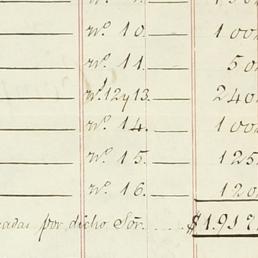 nº. 10. 100
nº. 11. 50
nº. 12 y 13. 240
nº. 14. 100
nº. 15. 125
nº. 16. 120
por dicho Sór. $1.917